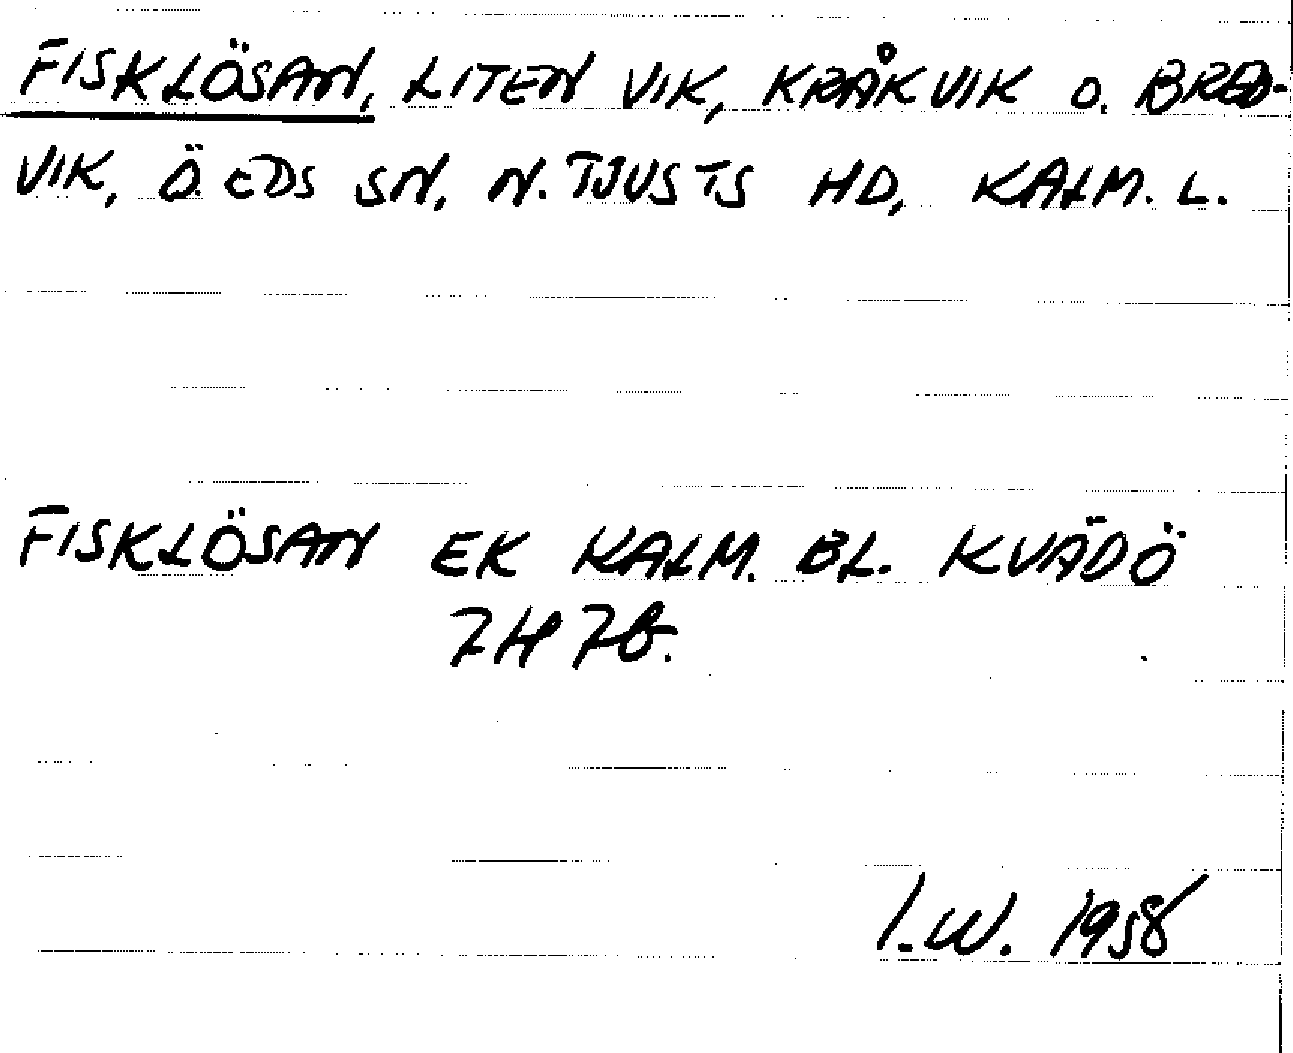 FISKLÖSAN, LITEN VIK, KRÅKVIK O. BRED-
VIK, Ö. EDS SN, N. TJUSTS HD, KALM. L.
FISKLÖSAN EK KALM. BL. KVÄDÖ
7H 7b.
I.W. 1958